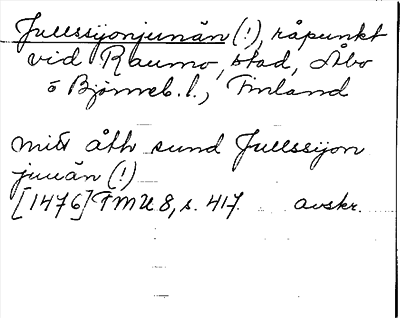 Jullssijonjunän (!), råpunkt
vid Raumo, stad, Åbo
o Björneb. l., Finland
mitt åth sund Jullssijon
junän (!)
[1476] FMU 8, s. 417. avskr.